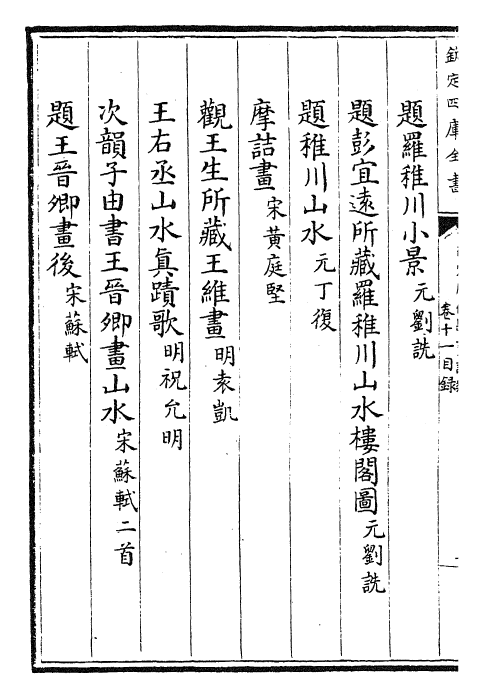 欽定四庫全書
卷十一目録
題羅稚川小景 元劉詵
題彭宜遠所藏羅稚川山水樓閣圖 元劉詵
題稚川山水 元丁復
摩詰畫 宋黄庭堅
觀王生所藏王維畫 明袁凱
王右丞山水真蹟歌 明祝允明
次韻子由書王晉卿畫山水 宋蘇軾二首
題王晉卿畫後 宋蘇軾